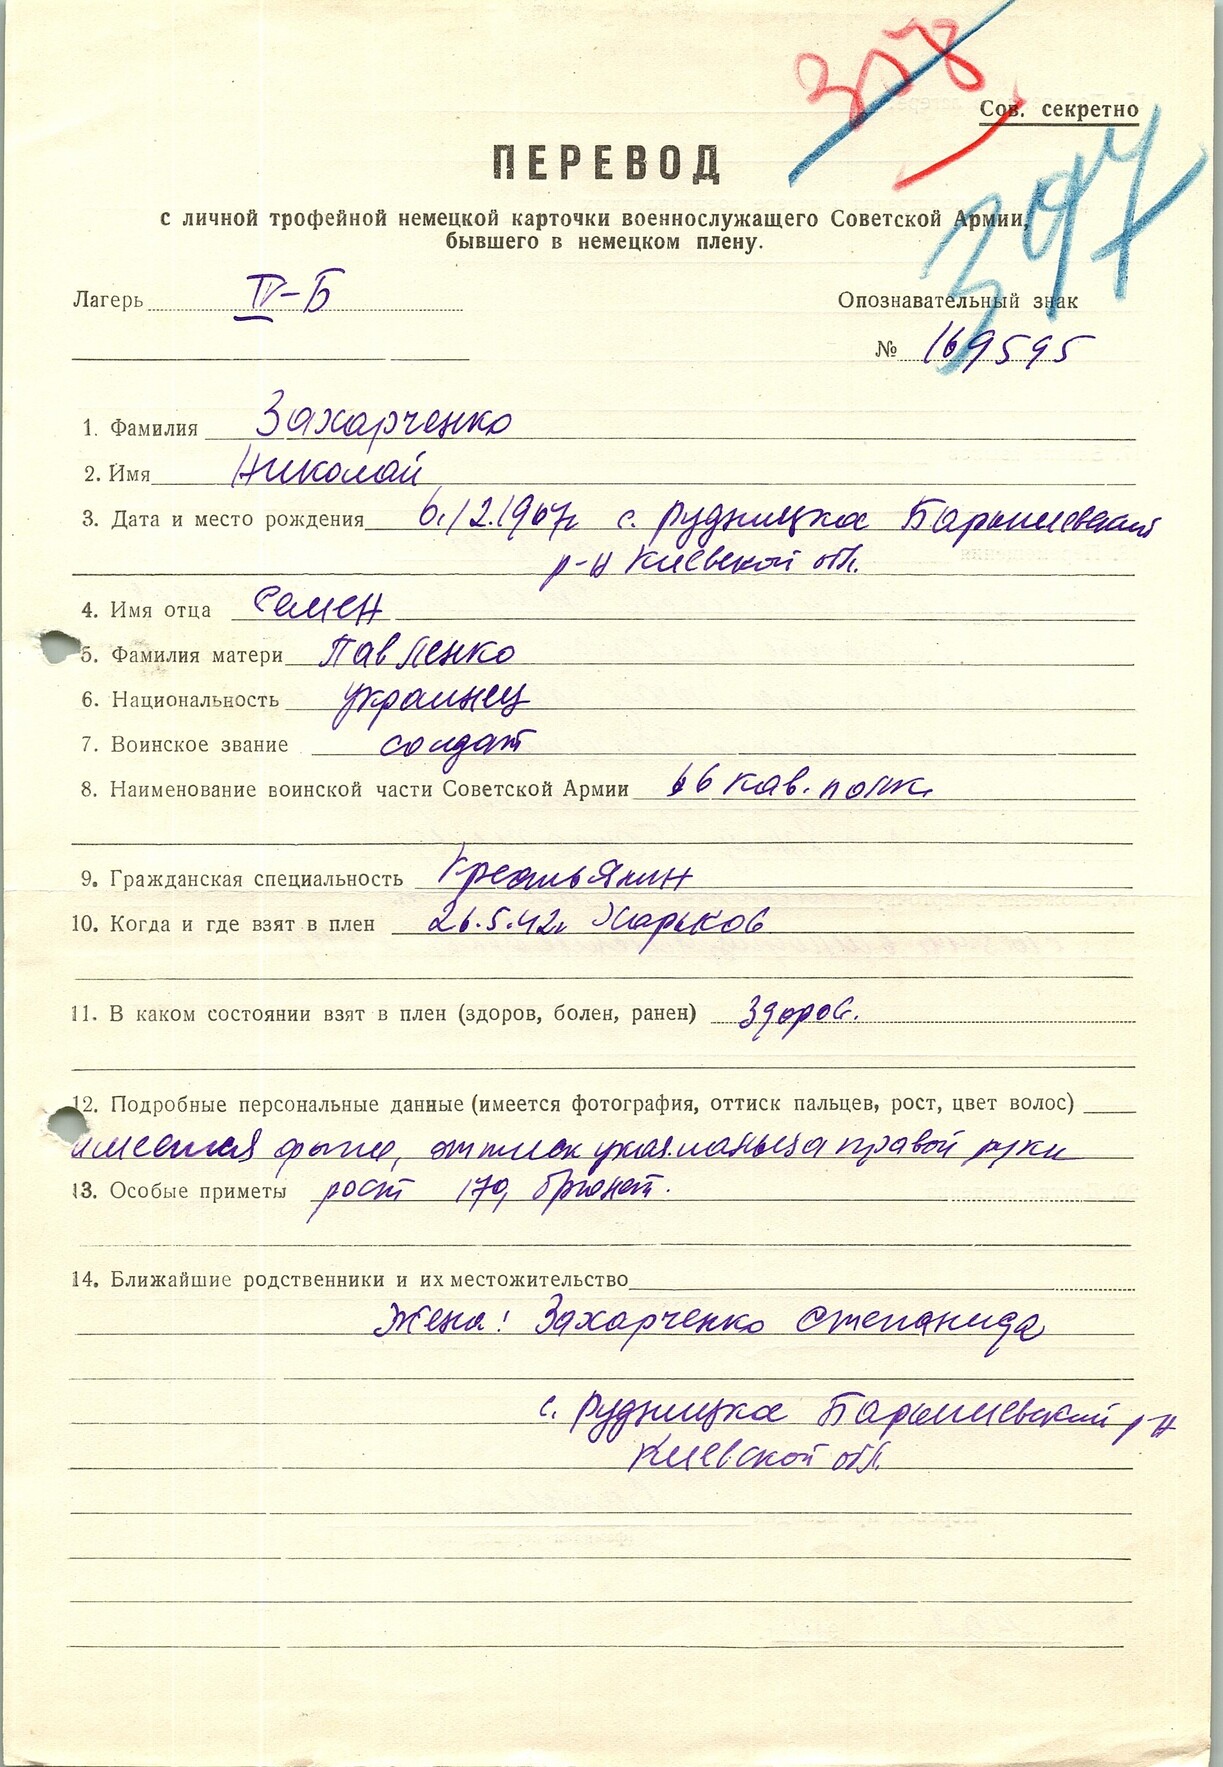 358
Сов. секретно
397
ПЕРЕВОД
с личной трофейной немецкой карточки военнослужащего Советской Армии,
бывшего в немецком плену.
Лагерь IV-Б
Опознавательный знак
№ 169595
1. Фамилия Захарченко
2. Имя Николай
3. Дата и место рождения 6.12.1907г с. Рудницка Барышевский
р-н Киевской обл.
4. Имя отца Семен
5. Фамилия матери Павленко
6. Национальность украинец
7. Воинское звание солдат
8. Наименование воинской части Советской Армии 66 кав. полк.
9. Гражданская специальность Крестьянин
10. Когда и где взят в плен 26.5.42г Харьков
11. В каком состоянии взят в плен (здоров, болен, ранен) здоров.
12. Подробные персональные данные (имеется фотография, оттиск пальцев, рост, цвет волос)
имеется фото, оттиск указ. пальца правой руки
13. Особые приметы рост 170, брюнет.
14. Ближайшие родственники и их местожительство
Жена: Захарченко Степанида
с. Рудницка Барышевский р-н
Киевской обл.